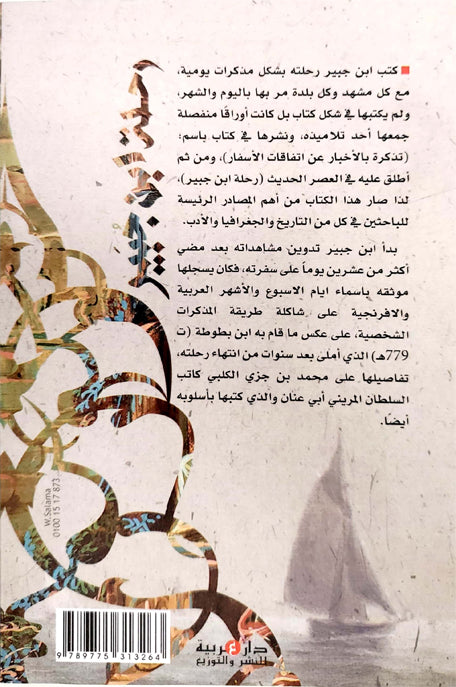 رحلة ابن جبير
■ كتب ابن جبير رحلته بشكل مذكرات يومية،
مع كل مشهد وكل بلدة مر بها باليوم والشهر،
ولم يكتبها في شكل كتاب بل كانت أوراقًا منفصلة
جمعها أحد تلاميذه، ونشرها في كتاب باسم:
(تذكرة بالأخبار عن اتفاقات الأسفار)، ومن ثم
أطلق عليه في العصر الحديث (رحلة ابن جبير)،
لذا صار هذا الكتاب من أهم المصادر الرئيسة
للباحثين في كل من التاريخ والجغرافيا والأدب.
بدأ ابن جبير تدوين مشاهداته بعد مضي
أكثر من عشرين يوماً على سفرته، فكان يسجلها
موثقه باسماء ايام الاسبوع والأشهر العربية
والافرنجية على شاكلة طريقة المذكرات
الشخصية، على عكس ما قام به ابن بطوطة (ت
779هـ) الذي أملى بعد سنوات من انتهاء رحلته،
تفاصيلها على محمد بن جزي الكلبي كاتب
السلطان المريني أبي عنان والذي كتبها بأسلوبه
أيضًا.
W.Salama
0100 15 17 873
9 789775 313264
دار عربية
للنشر والتوزيع